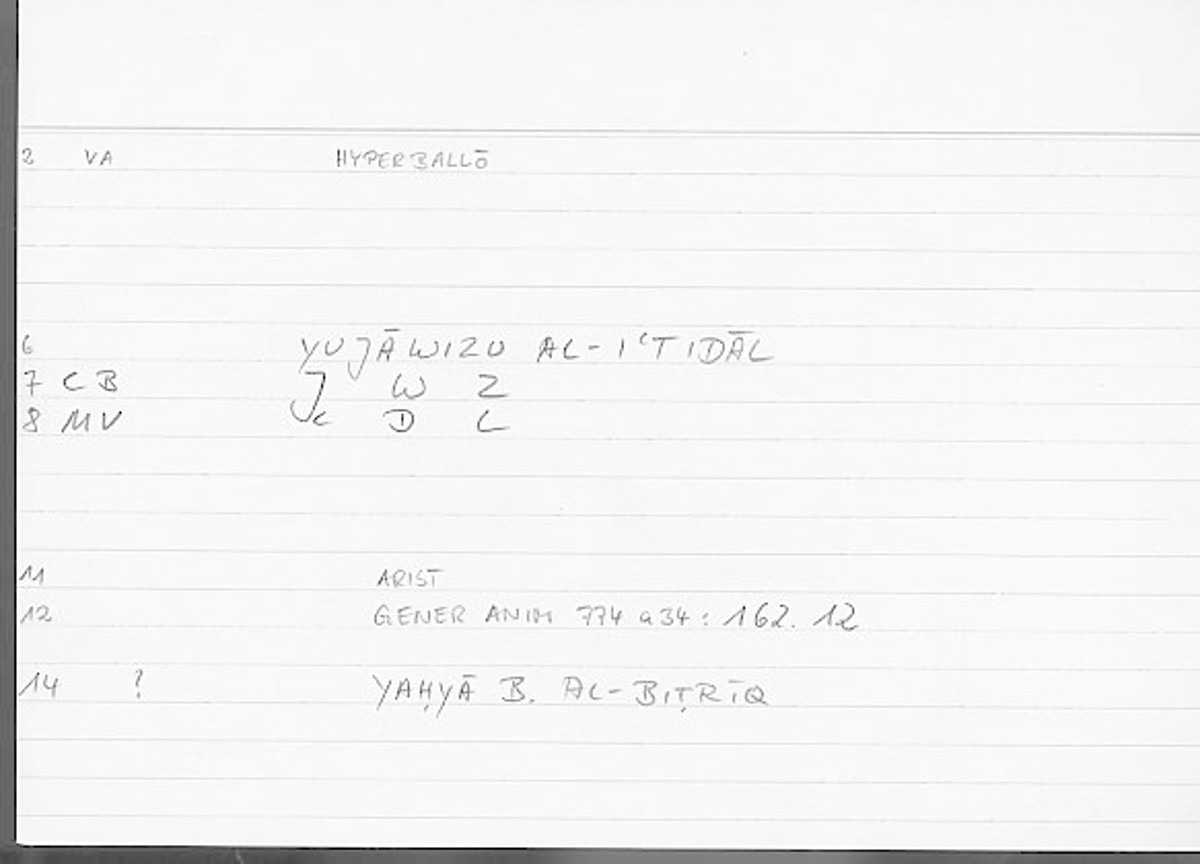 2 VA HYPERBALLŌ
6 YUJĀWIZU AL-IʿTIDĀL
7 CB J W Z
8 MV ʿ D L
11 ARIST
12 GENER ANIM 774 a34 : 162. 12
14 ? YAḤYĀ B. AL-BIṬRĪQ